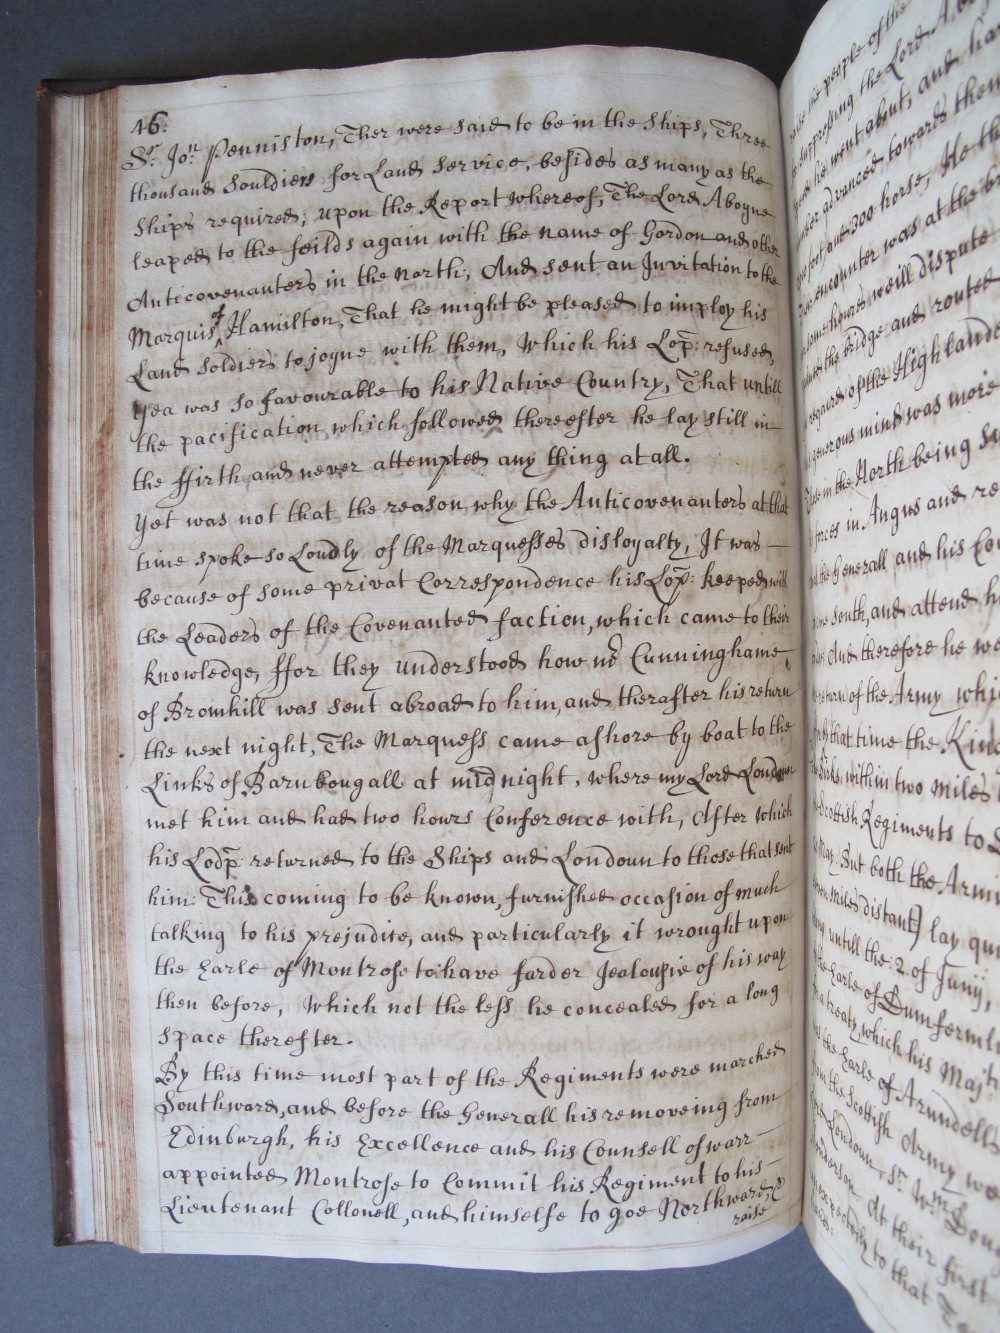 46.
Sr. Jon Penniston, Ther were said to be in the Ships, Three
thousand Souldiers for Land Service, besides as many as the
Ships required; upon the Report whereof, The Lord Aboyne
leaped to the feilds again with the name of Gordon and other
Anticovenanters in the North; And sent an Invitation to the
Marquis of Hamilton, That he might be pleased to imploy his
Land soldiers to joyne with them, Which his Lop: refused,
yea was so favourable to his Native Country, That untill
the pacification which followed therefter he lay still in
the ffirth and never attempted any thing at all.
Yet was not that the reason why the Anticovenanters at that
time spoke so Loudly of the Marquesses disloyalty, It was
because of some privat Correspondence his Lop: keeped with
the Leaders of the Covenanted faction, which came to their
knowledge, ffor they understood how mr Cunninghame
of Bromhill was sent abroad to him, and therafter his return
the next night, The Marquess came ashore by boat to the
Links of Barnbougall at midnight, where my Lord Loudoun
met him and had two hours Conference with, After which
his Lodp: returned to the Ships and Loudoun to those that sent
him: This coming to be known, furnished occasion of much
talking to his prejudise, and particularly it wrought upon
the Earle of Montrose to have farder Jealousie of his way
then before, Which not the less he concealed for a long
space therefter.
By this time most part of the Regiments were marched
Southward, and before the Generall his removeing from
Edinburgh, his Excellence and his Counsell of warr
appointed Montrose to Commit his Regiment to his
Lieutenant Collonell, and himselfe to goe Northward, &
raise
the people of the
suppressing the Lord
he went about, and
advanced towards them
300 horse, He
encounter was at the
some howres weill dispute
the bridge and routed
regaird of the Highland
generous mind was more
in the North being
forces in Angus and
the Generall and his
South, and attend
And therefore he
return of the Army
that time the King
Birks, within two miles
Scottish Regiments to
May: But both the
miles distant) lay
untill the 2. of Junij,
the Earle of Dumferml
a treaty, which his Maj:
the Earle of Arundell
the Scottish Army
Loudoun, Sr. Wm.
At their first
expectedly to that